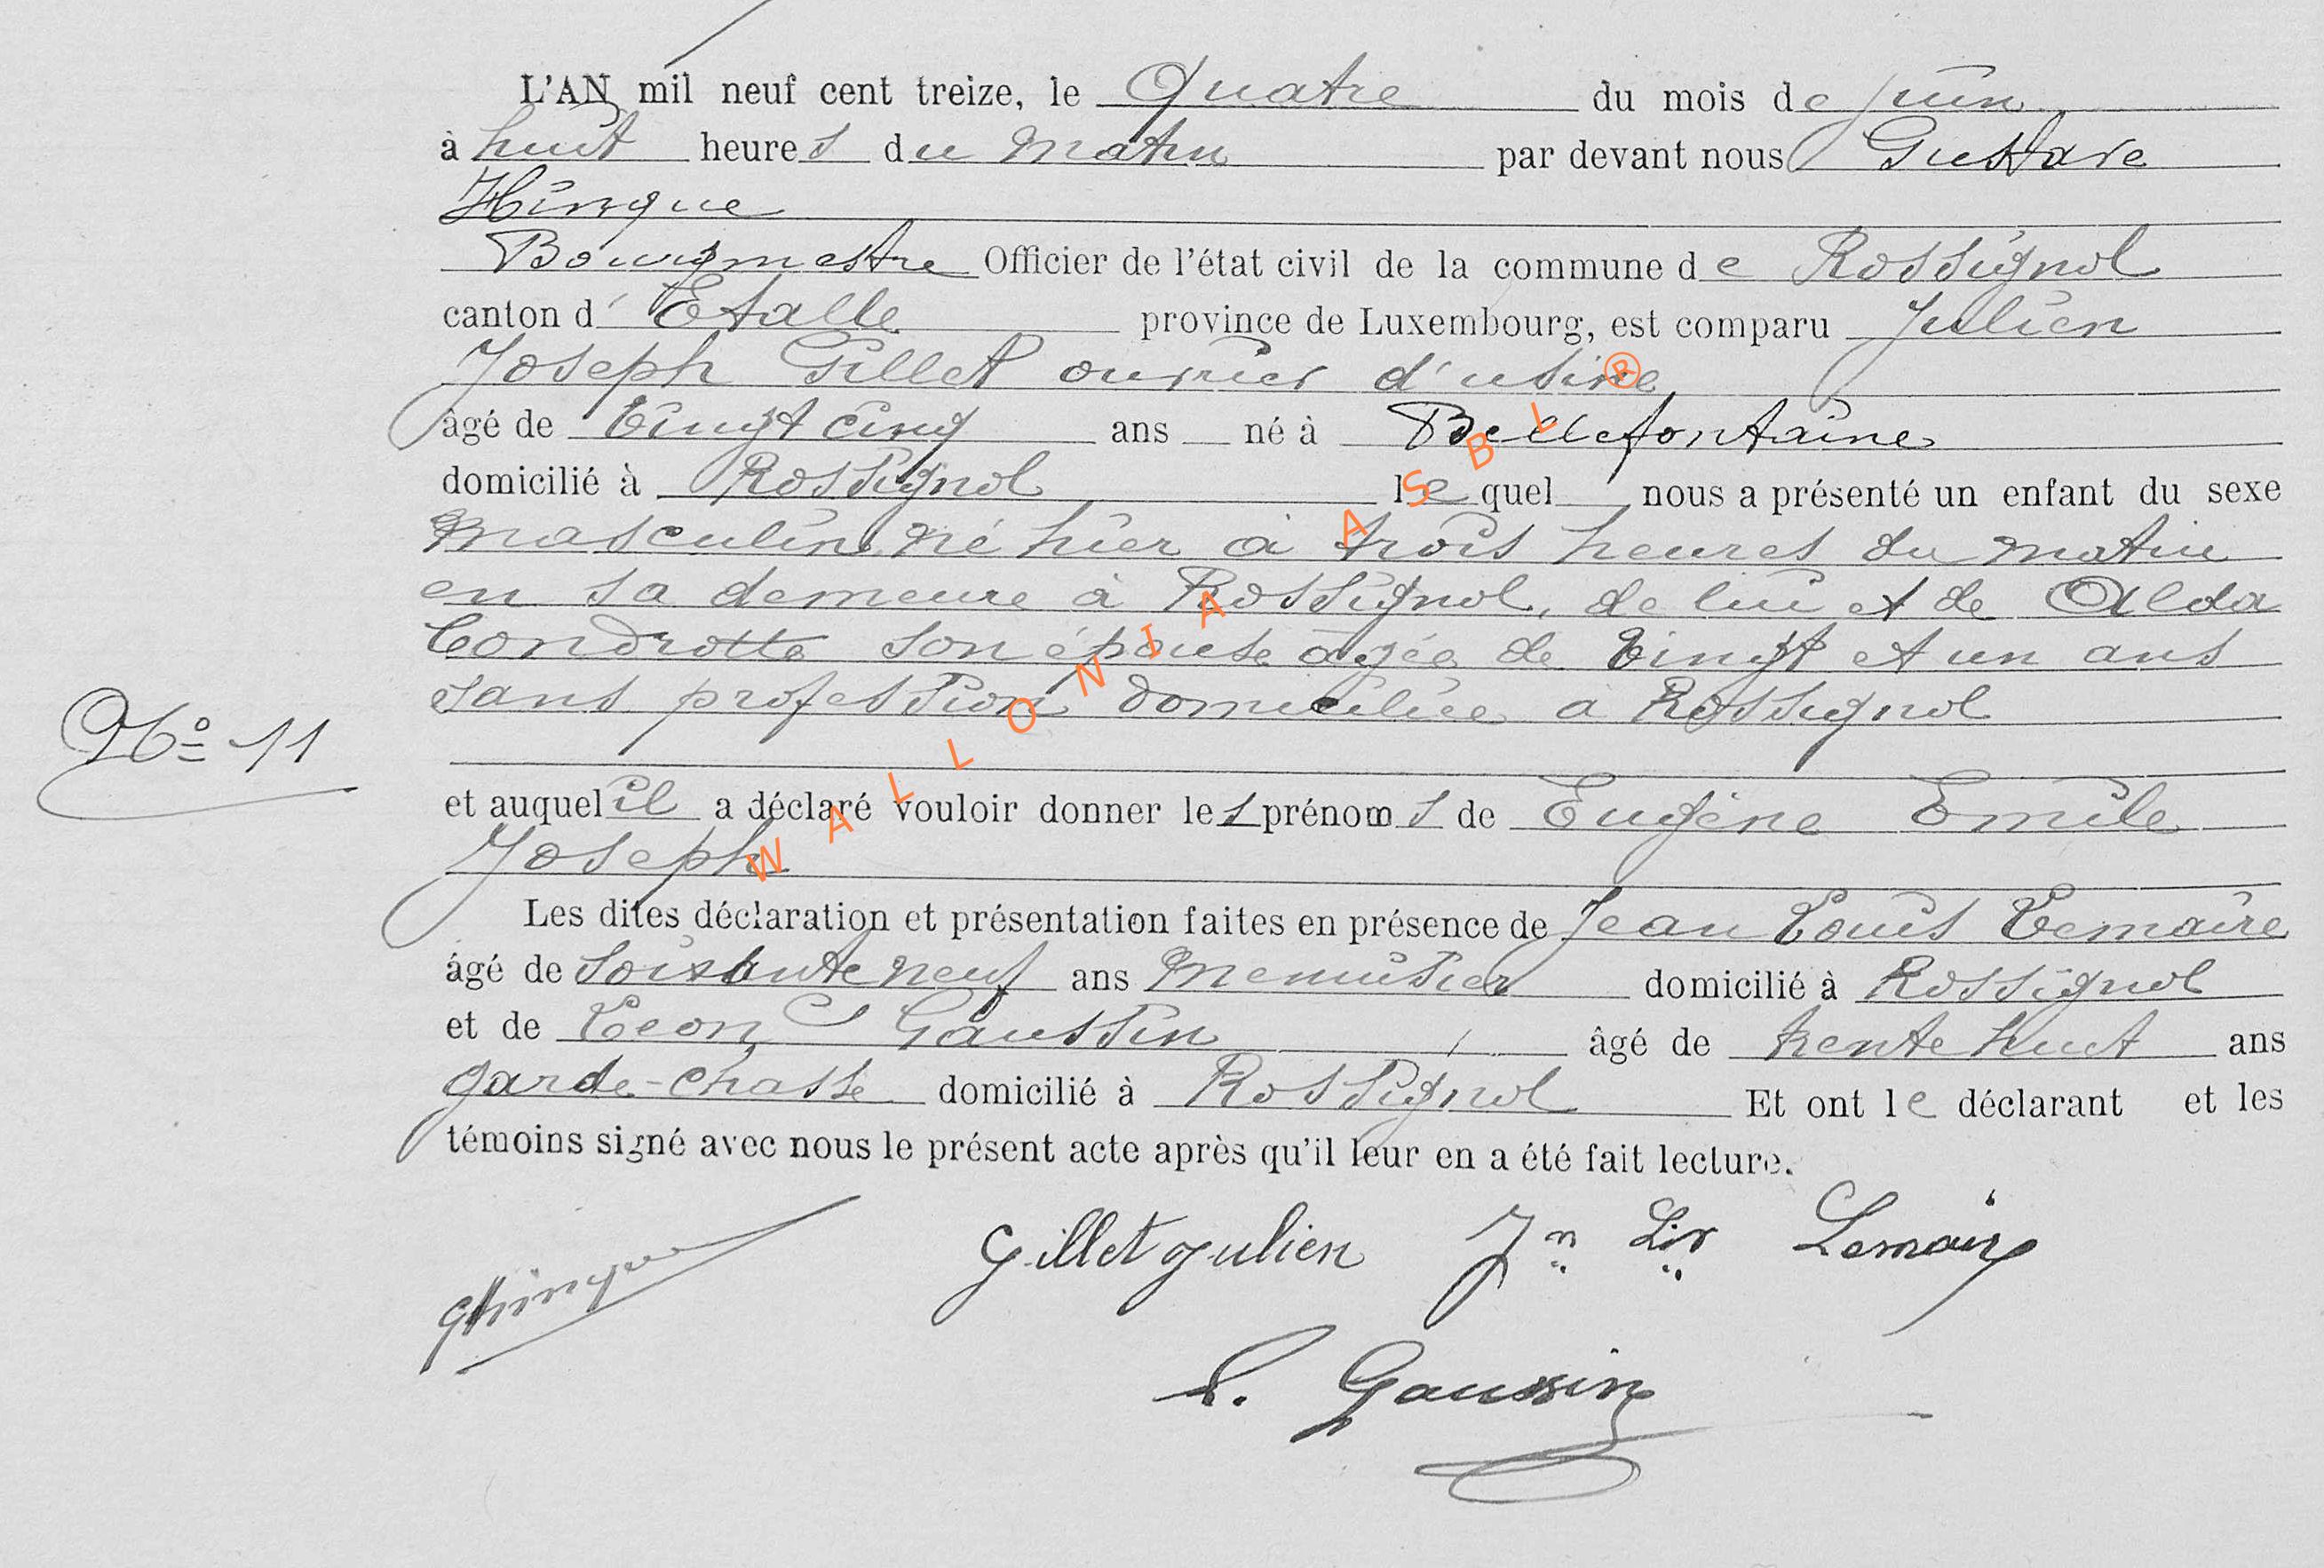 L'AN mil neuf cent treize, le Quatre du mois de Juin
à huit heures du matin par devant nous Gustave
Hinque
Bourgmestre Officier de l'état civil de la commune de Rossignol
canton d'Etalle province de Luxembourg, est comparu Julien
Joseph Gillet ouvrier d'usine
âgé de Vingt cinq ans né à Bellefontaine
domicilié à Rossignol lequel nous a présenté un enfant du sexe
masculin né hier à trois heures du matin
en sa demeure à Rossignol, de lui et de Alda
Condrotte son épouse âgée de vingt et un ans
sans profession domiciliée a Rossignol
No 11
et auquel il a déclaré vouloir donner les prénoms de Eugène Emile
Joseph
Les dites déclaration et présentation faites en présence de Jean Louis Lemaire
âgé de soixante neuf ans menuisier domicilié à Rossignol
et de Leon Gaussin âgé de trente huit ans
garde-chasse domicilié à Rossignol Et ont le déclarant et les
témoins signé avec nous le présent acte après qu'il leur en a été fait lecture.
GHinque Gillet Julien Jn Ls Lemaire
L. Gaussin
WALLONIA ASBL ®